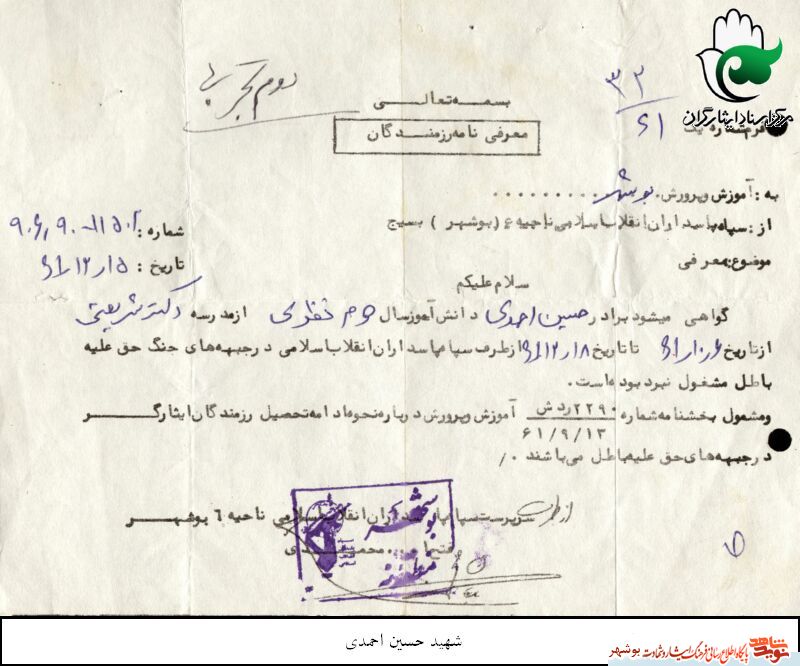 دوم تجربی
۳۲
۶۱
مرکز اسناد ایثارگران
بسمه تعالی
فرم شماره یک
معرفی نامه رزمندگان
به : آموزش و پرورش . بوشهر . . . . . . . . .
از : سپاه پاسداران انقلاب اسلامی ناحیه ۶ ( بوشهر ) بسیج
شماره :
موضوع : معرفی
تاریخ : ۶۱/۱۲/۵
سلام علیکم
گواهی میشود برادر حسین احمدی دانش آموز سال دوم نظری از مدرسه دکتر شریعتی
از تاریخ تا تاریخ ۶۱/۱۲/۸ از طرف سپاه پاسداران انقلاب اسلامی در جبهه های جنگ حق علیه
باطل مشغول نبرد بوده است .
و مشمول بخشنامه شماره ۲۲۹۰ ردش آموزش و پرورش درباره نحوه ادامه تحصیل رزمندگان ایثارگر
۶۱/۹/۱۳
در جبهه های حق علیه باطل می باشند ./
از طرف سرپرست سپاه پاسداران انقلاب اسلامی ناحیه ۶ بوشهر
فتح اله ... محمدی
بوشهر
شهید حسین احمدی
نوید شاهد
پایگاه اطلاع رسانی فرهنگ ایثار و شهادت بوشهر